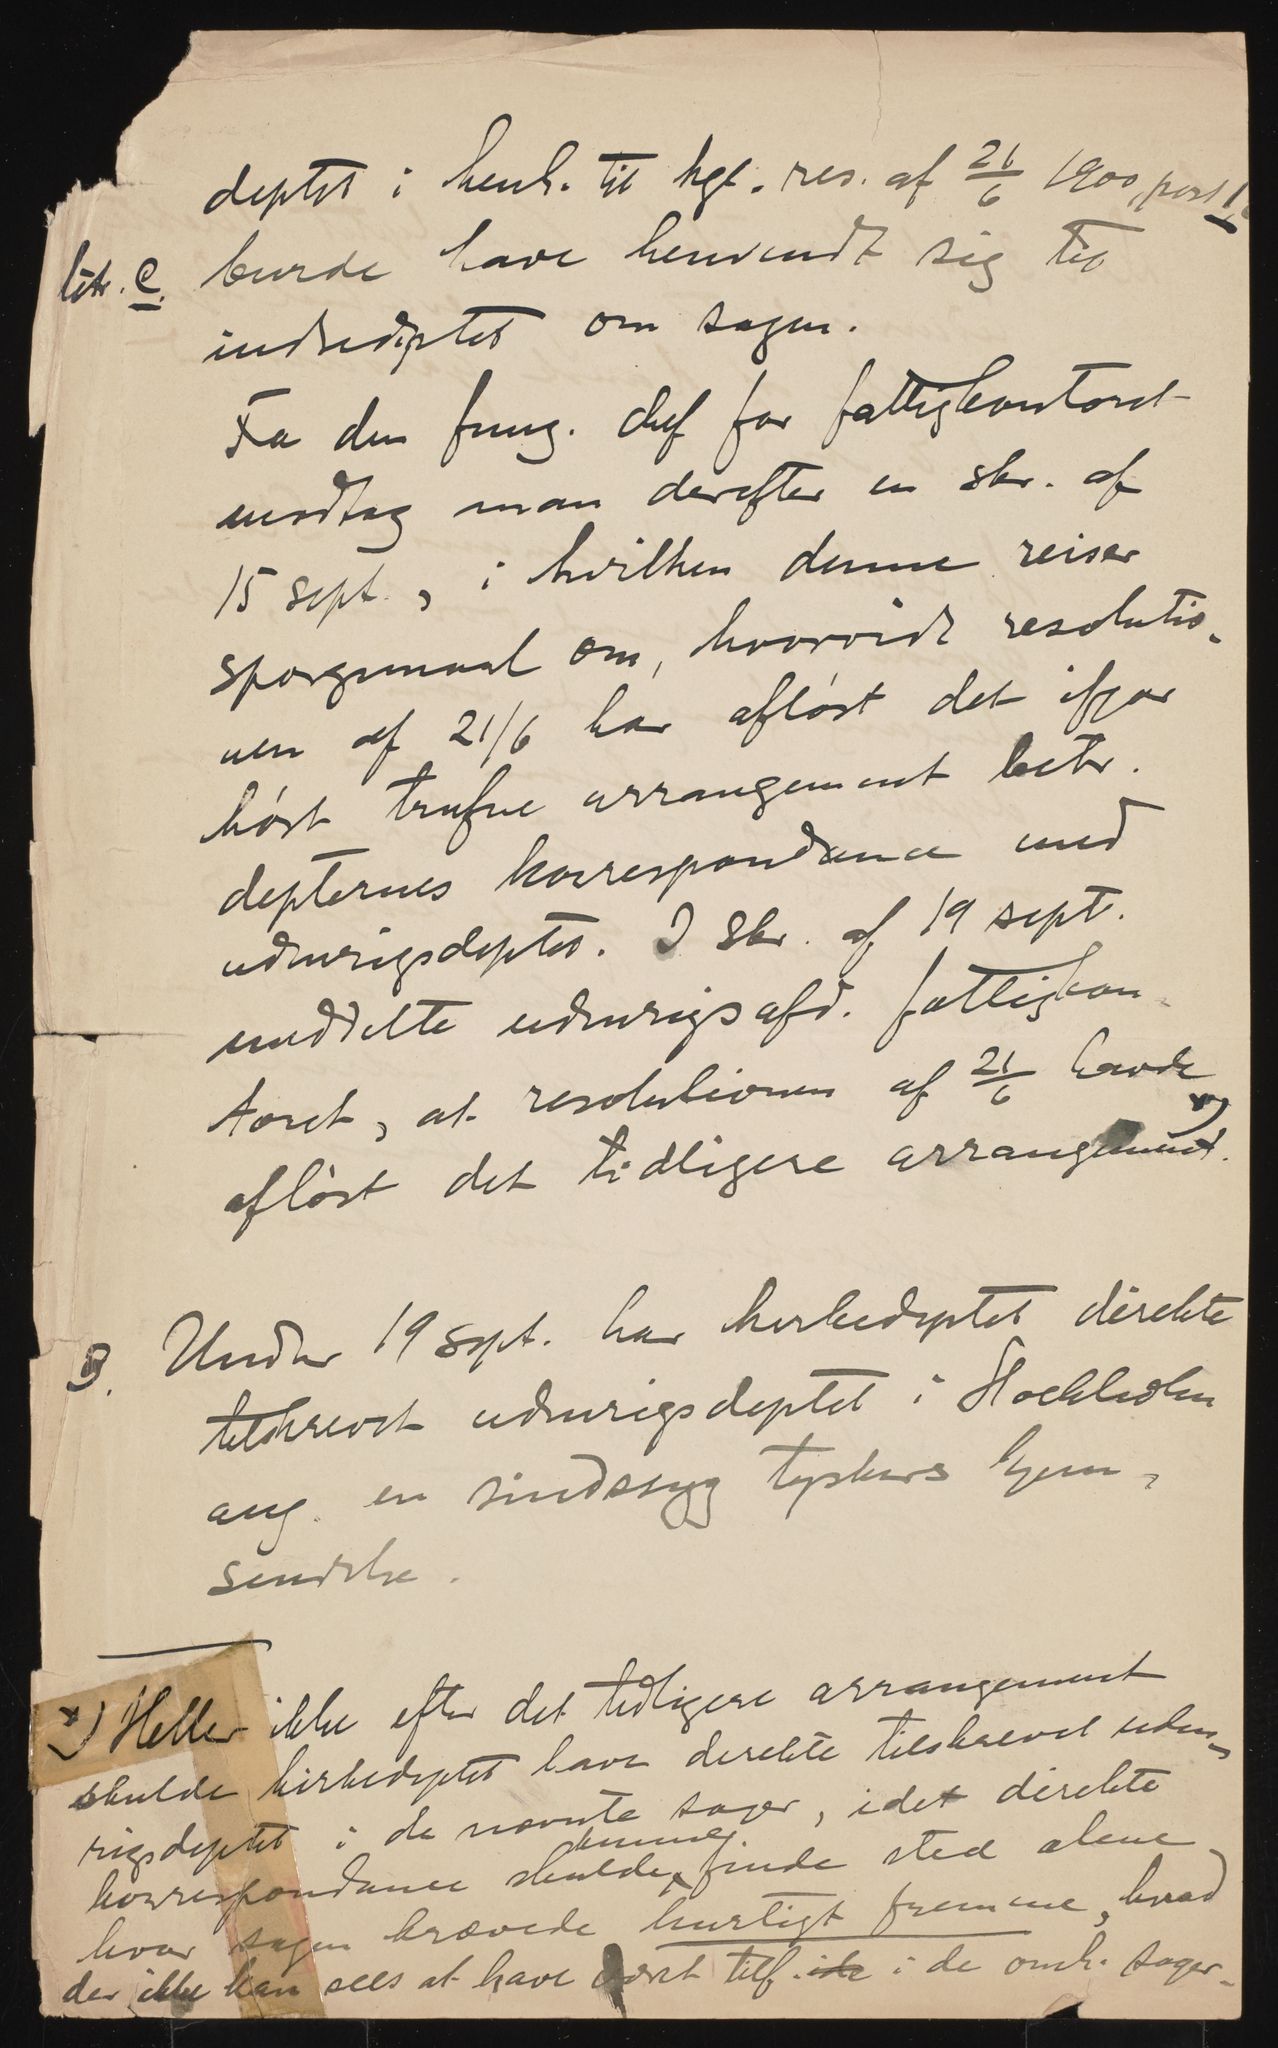 deptet i henh. til kgl. res. af 21/6 1900, post 1,
litr. C. burde have henvendt sig til
indredeptet om sagen.
Fra den fung. chef for fattigkontoret
modtog man derefter en skr. af
15 sept., i hvilken denne reiser
spørgsmaal om, hvorvidt resolutio-
nen af 21/6 har afløst det ifjor
høst trufne arrangement betr.
depternes korrespondance med
udenrigsdeptet. I skr. af 19 sept.
meddelte udenrigsafd. fattigkon-
toret, at resolutionen af 21/6 havde
afløst det tidligere arrangement. x)
3. Under 19 sept. har kirkedeptet direkte
tilskrevet udenrigsdeptet i Stockholm
ang. en sindssyg tyskers hjem-
sendelse.
x) Heller ikke efter det tidligere arrangement
skulde kirkedeptet have direkte tilskrevet uden-
rigsdeptet i de nævnte sager, idet direkte
korrespondance skulde finde sted alene,
hvor sagen krævede hurtigt fremme, hvad
der ikke kan sees at have været tilf. i de omh. sager.